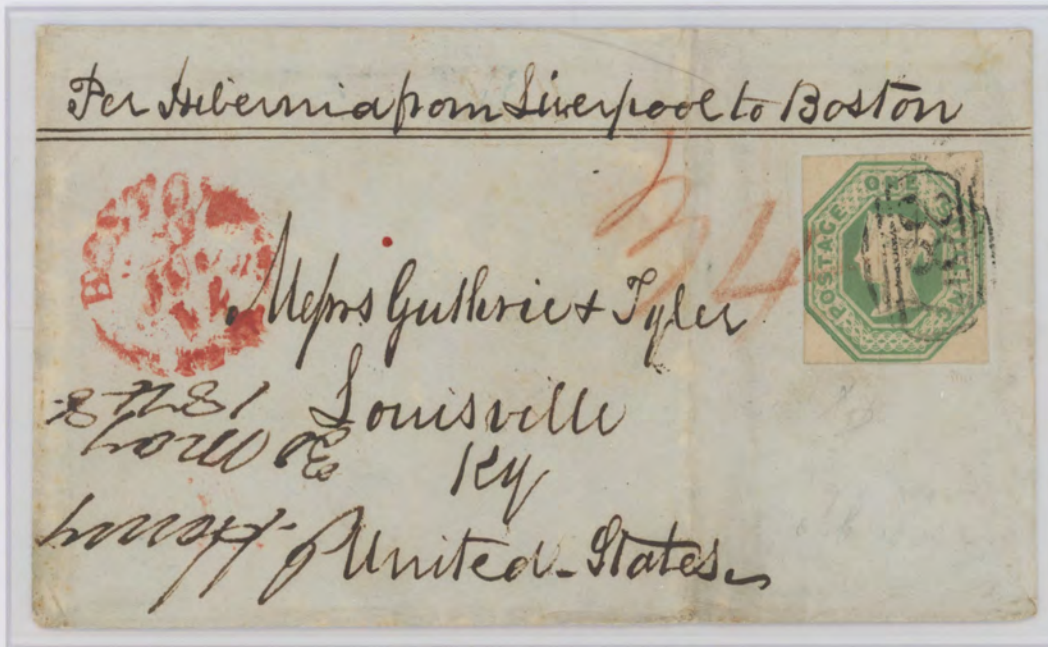 Per Hibernia from Liverpool to Boston
BOSTON
34
POSTAGE ONE SHILLING
Messrs Guthrie & Tyler
Louisville
Ky
United-States
1848
30 Nov